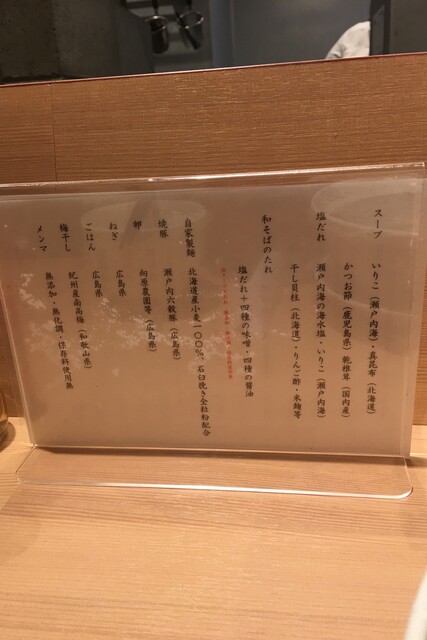 スープ　いりこ（瀬戸内海）・真昆布（北海道）
かつお節（鹿児島県）乾椎茸（国内産）
塩だれ　瀬戸内海の海水塩・いりこ（瀬戸内海）
干し貝柱（北海道）・りんご酢・米麹等
和そばのたれ
塩だれ＋四種の味噌・四種の醤油
自家製麺　北海道産小麦一〇〇％、石臼挽き全粒粉配合
焼豚　瀬戸内六穀豚（広島県）
卵　向原農園等（広島県）
ねぎ　広島県
ごはん　広島県
梅干し　紀州産南高梅（和歌山県）
メンマ　無添加・無化調・保存料使用無